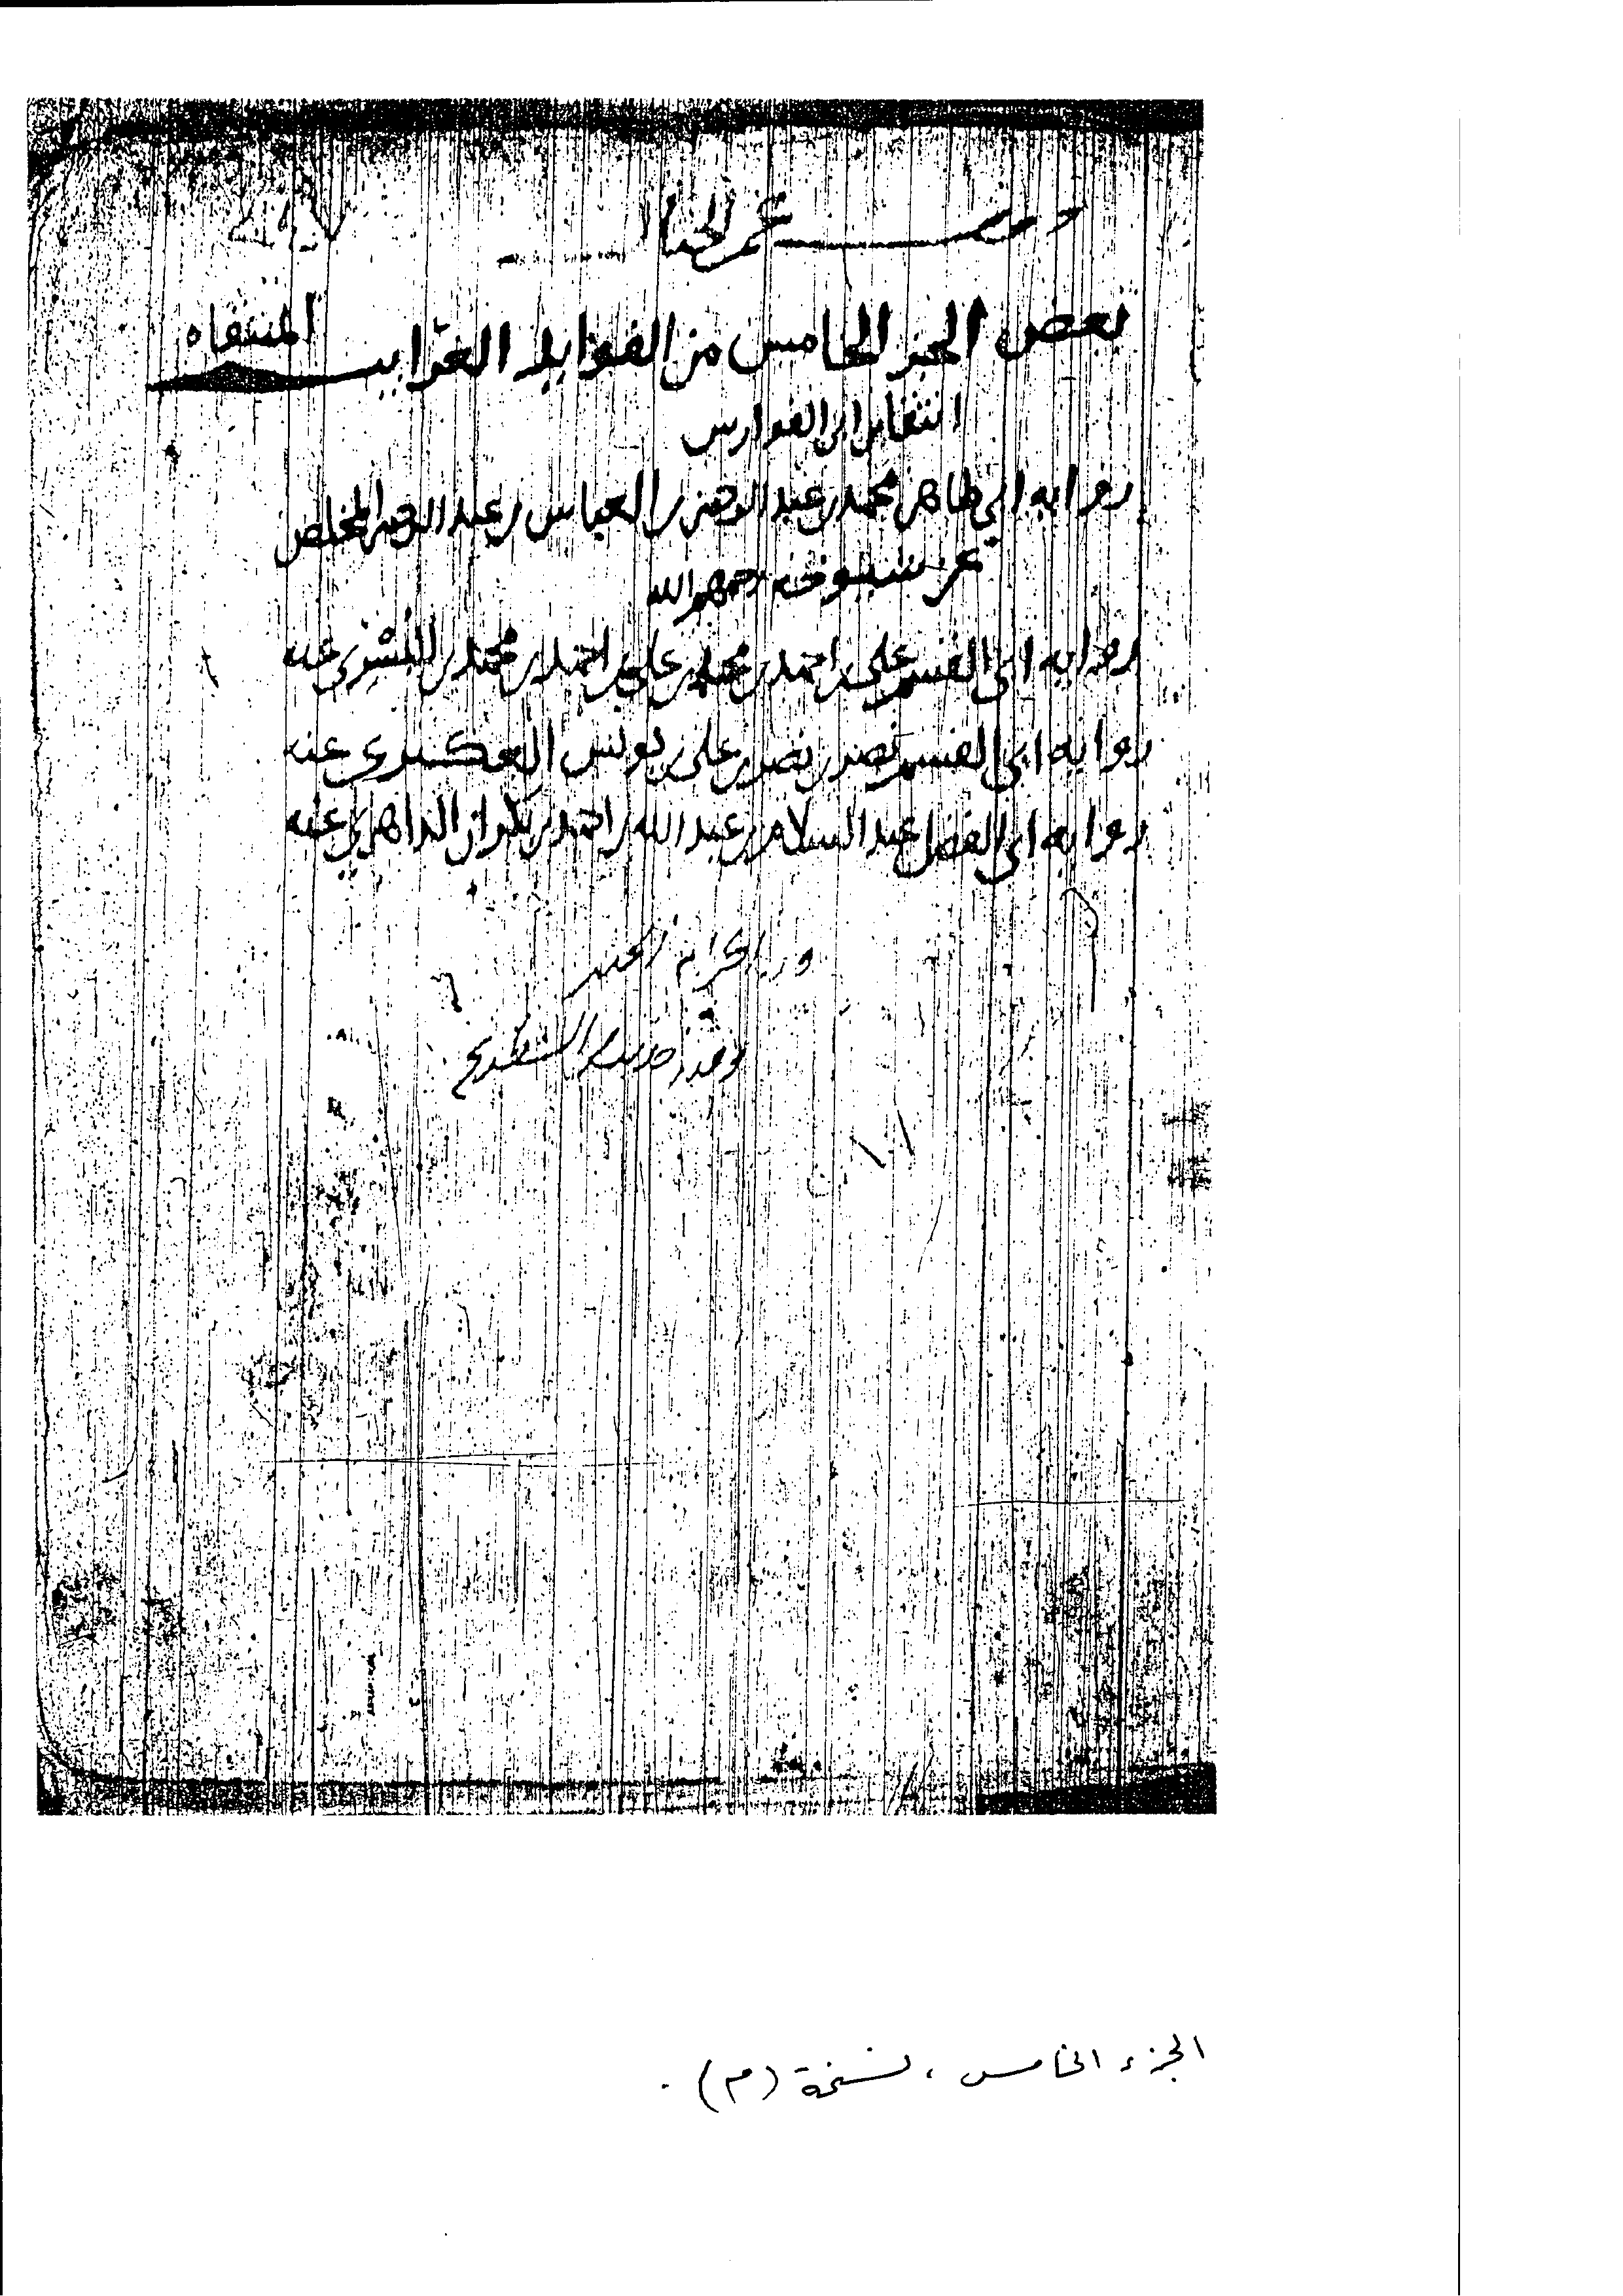 بعض الجز الخامس من الفوايد الغرايب المنتقاه
انتقا ابن ابي الفوارس
روايه ابي طاهر محمد بن عبد الرحمن بن العباس بن عبد الرحمن المخلص
عن شيوخه رحمهم الله
روايه ابي القسم علي بن احمد بن محمد بن علي بن احمد بن محمد بن البسري عنه
روايه ابي القسم نصر بن نصر بن علي بن يونس العكبري عنه
روايه ابي الفضل عبد السلام بن عبد الله بن احمد بن بكران الداهري عنه
الجزء الخامس ، نسخة (م) .